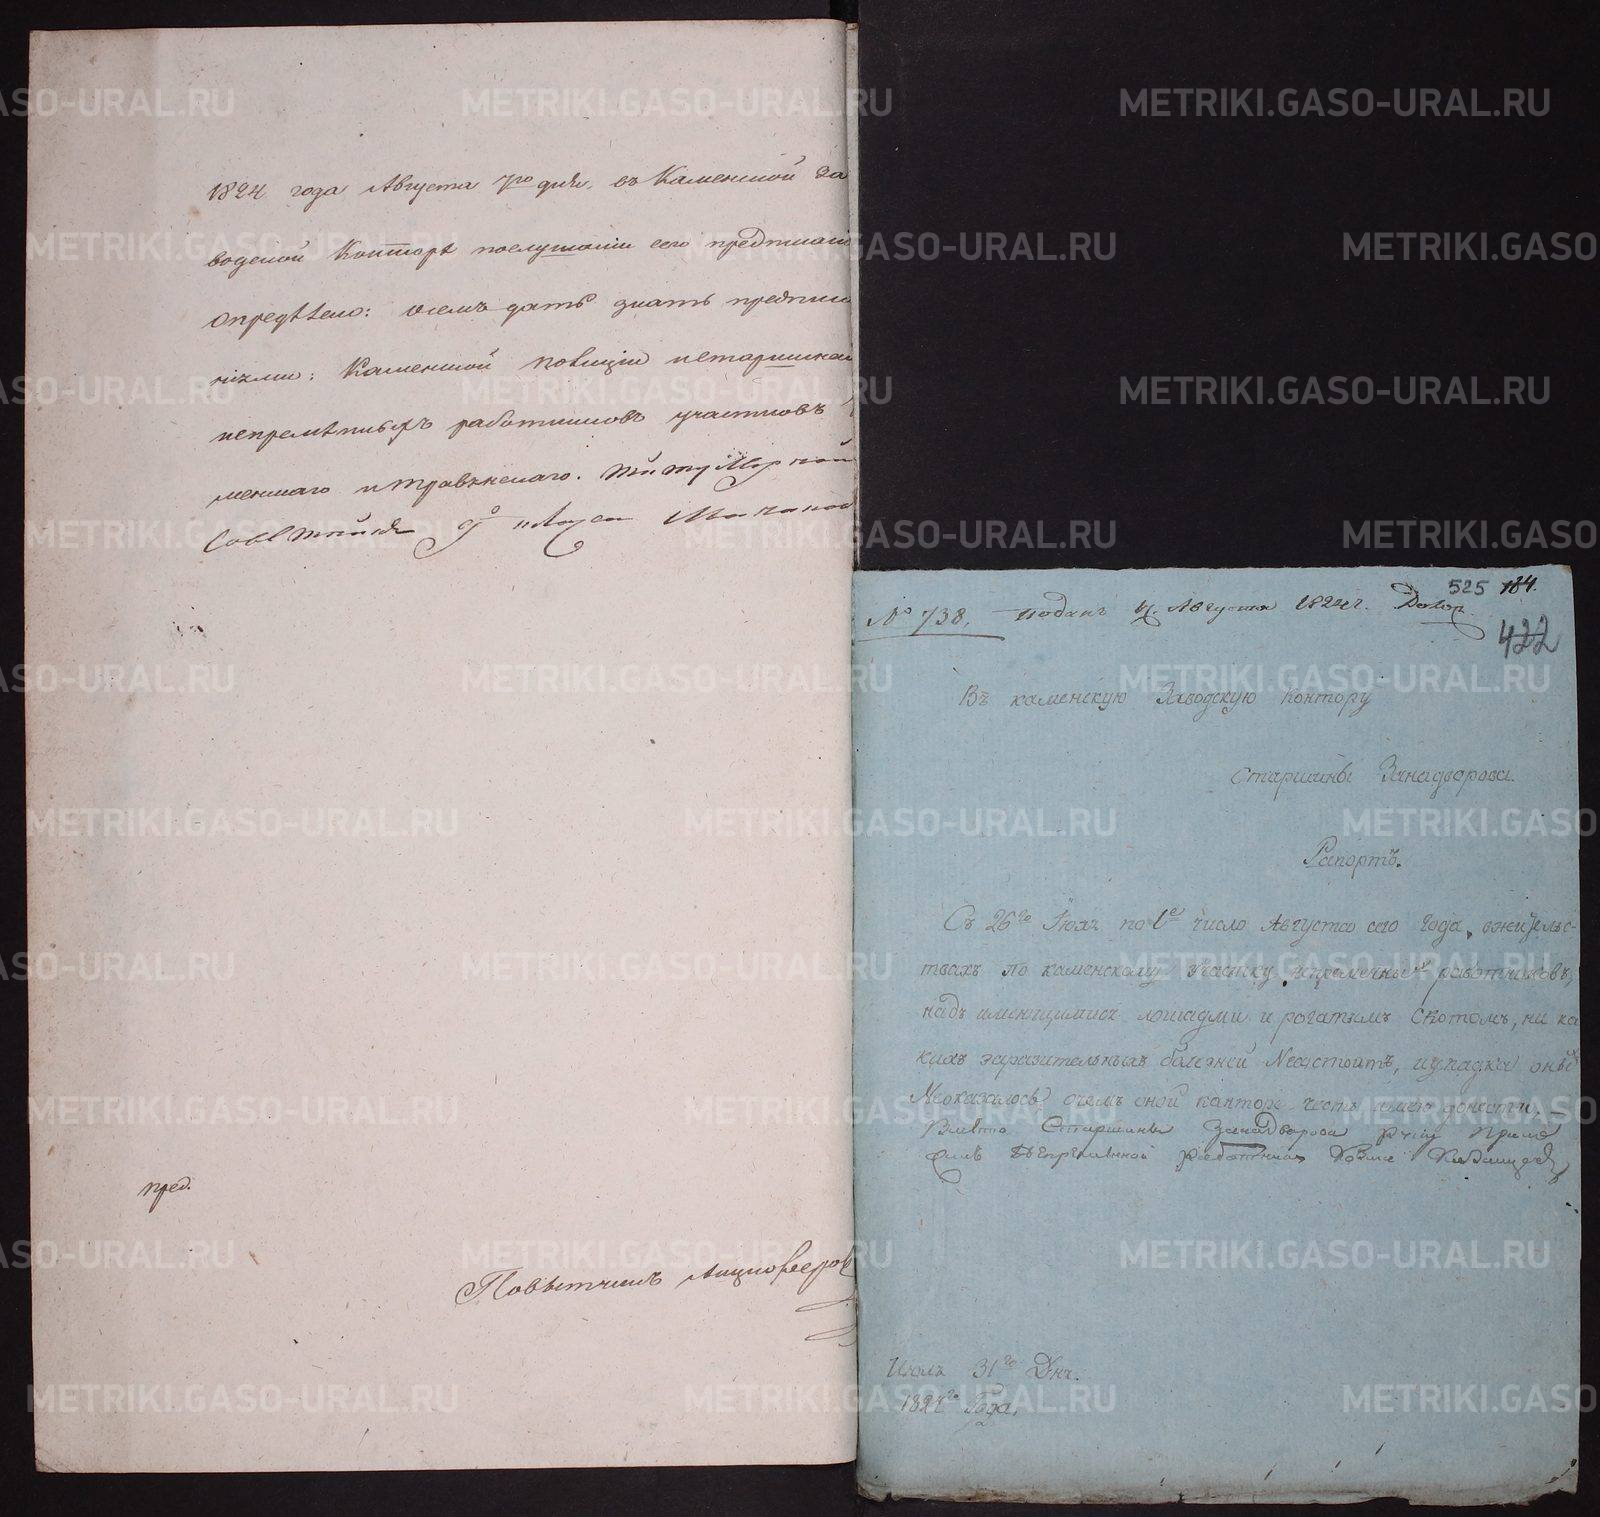 1824 года Августа 7го дня, въ Каменской За
водской Конторѣ послушаніи сего предписанi
опредѣлено: очемъ дать знать предписа
нiями: Каменской полиціи истаршинам
непремѣнныхъ работниковъ участковъ К
менскаго итравянскаго.
Повытчикъ
пред.
525 184.
№ 738. Подан 4. Августа 1824 г. Доклр
422
Въ каменскую Заводскую контору
Старшины Занадворова.
Рапортъ.
Съ 26го Июля по 1е число Августа сего года, вжительс-
твахъ по каменскому участку, непремѣнныхъ работников,
надъ имеющимися лошадми и рогатымъ скотомъ, ни ка
кихъ заразительныхъ болезней Несостоитъ, иупадка оныхъ
Неоказалось очемъ оной канторе честь имею донести,
Вместо Старшины Занадворова руку прило
жилъ Непременной работникъ
Июля 31го Дня.
1824го Года.
METRIKI.GASO-URAL.RU